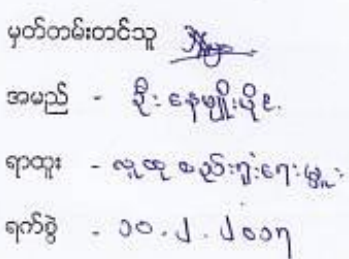 မှတ်တမ်းတင်သူ
အမည် - ဦးနေမျိုးပိုင်
ရာထူး - လူထု စည်းရုံးရေးမှူး
ရက်စွဲ - ၁၀.၂.၂၀၁၇